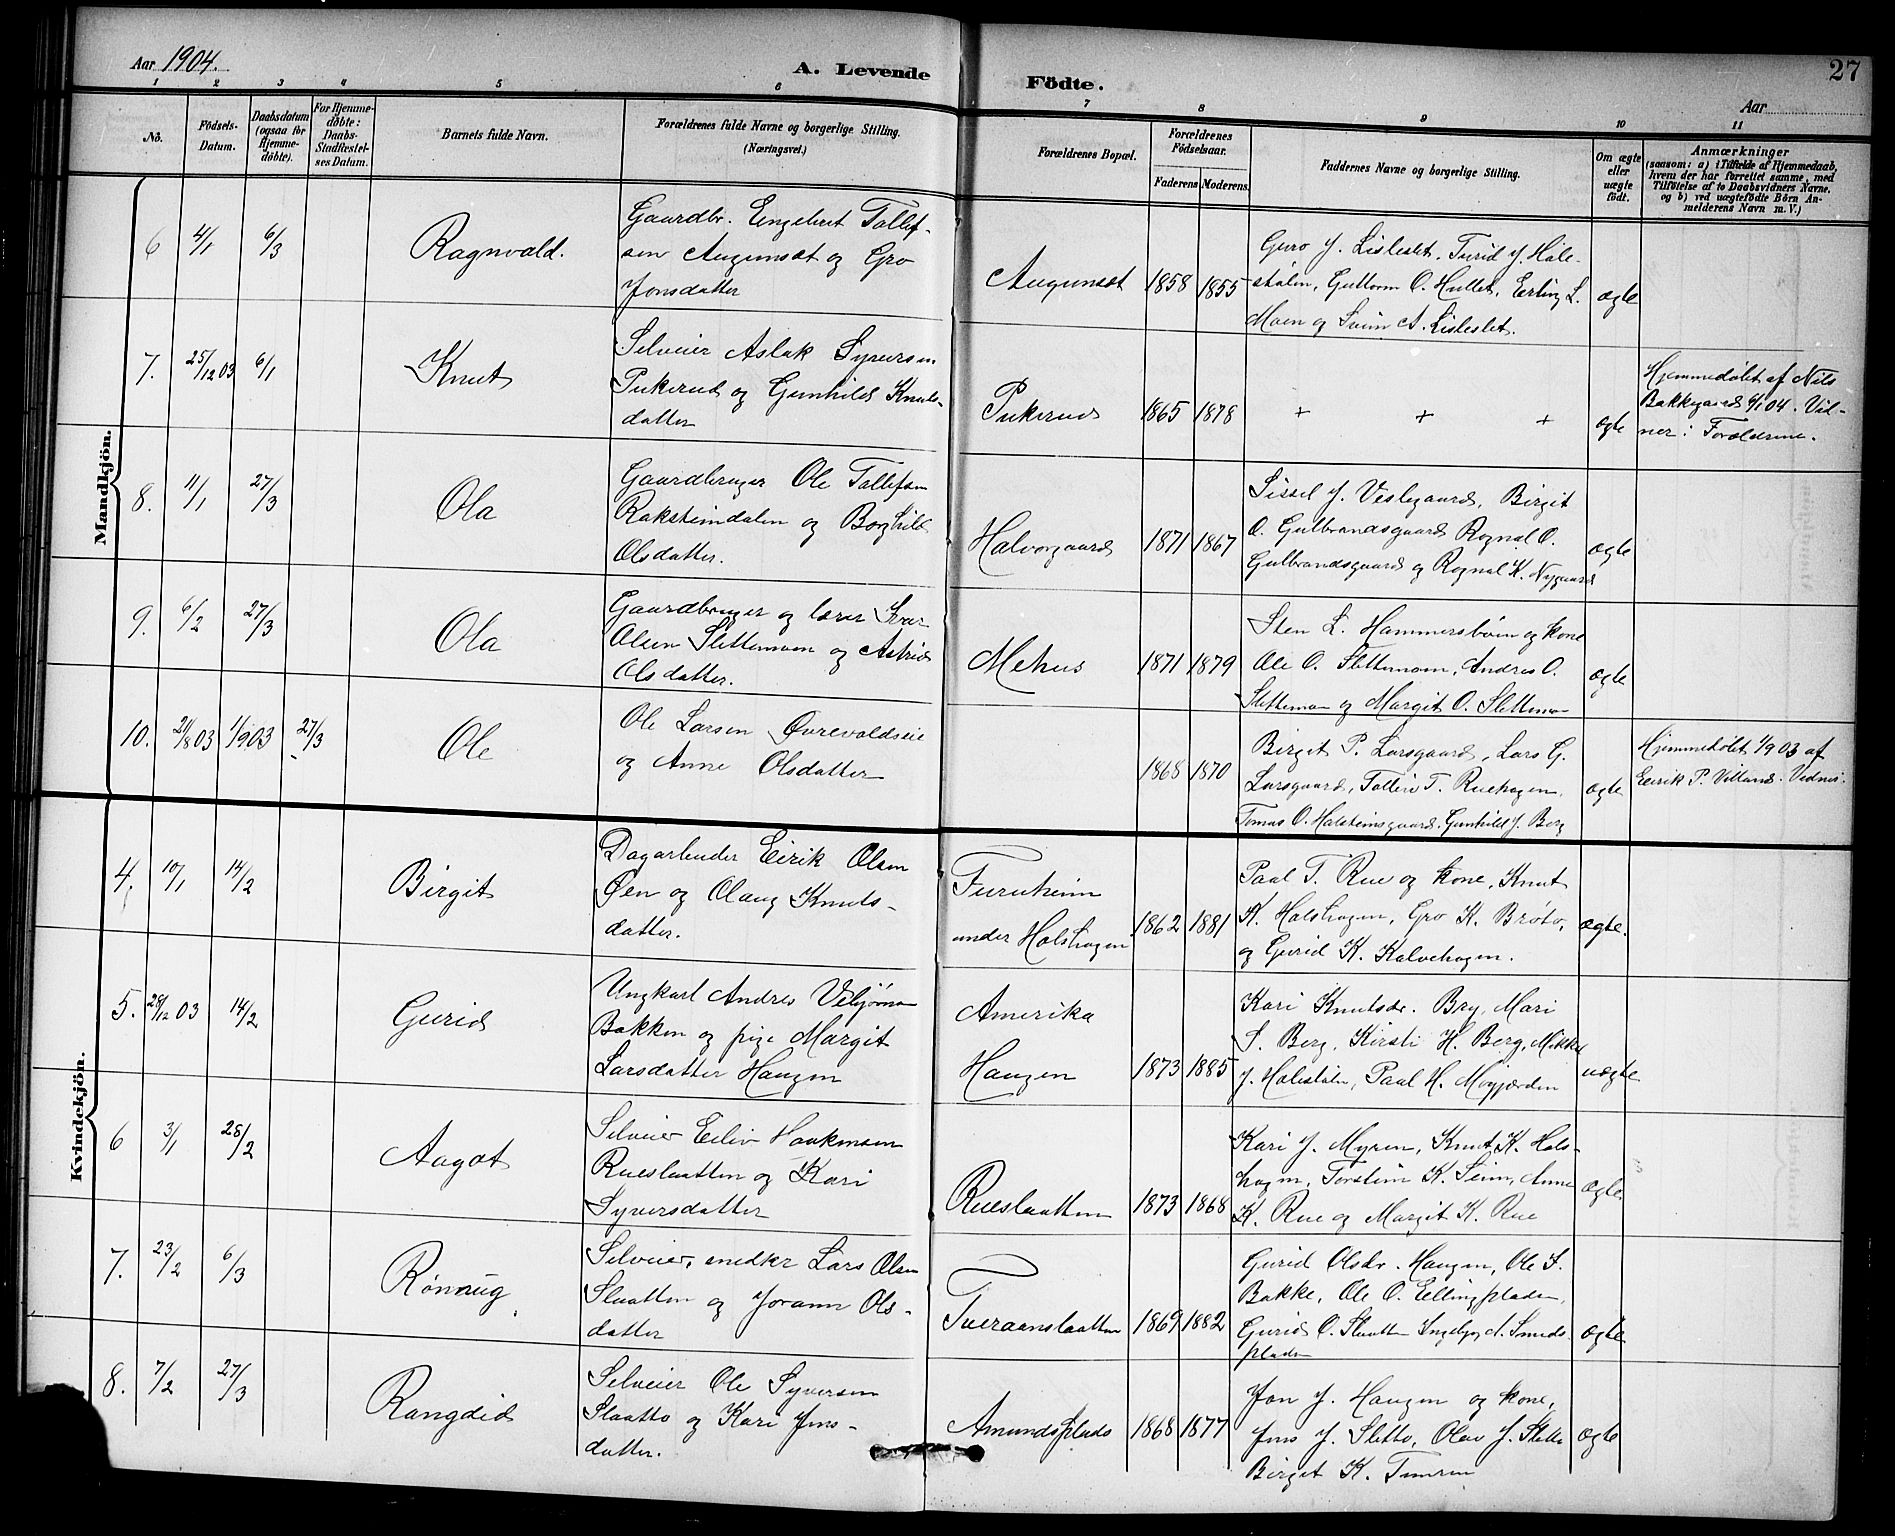 Aar 1904.
A. Levende
Födte.
27
Aar
1 2 3 4 5 6 7 8 9 10 11
No.
Födsels-Datum.
Daabsdatum (ogsaa for Hjemme-döbte).
For Hjemme-döbte: Daabs-Stadfæstel-ses Datum.
Barnets fulde Navn.
Forældrenes fulde Navne og borgerlige Stilling.
(Næringsvei.)
Forældrenes Bopæl.
Forældrenes Födselsaar.
Faderens Moderens.
Faddernes Navne og borgerlige Stilling.
Om ægte eller uægte født.
Anmærkninger
(saasom: a) i Tilfælde af Hjemmedaab, hvem der har forrettet samme, med Tilföielse af to Daabsvidners Navne. og b) ved uægtefödte Börn An-melderens Navn m. V.)
Mandkjön.
6 4/1 6/3 Ragnvald.
Gaardbr. Engebret Tollef-
sen Augunset og Gro
Jonsdatter
Augunset 1858 1855
Guro J. Lisleslet, Turid J. Hale-
stølen, Guttorm O. Hullet, Erling L.
Moen og Svein A. Lisleslet.
ægte
7. 25/12 03 6/1 Knut
Selveier Aslak Syversen
Pukerud og Gunhild Knuts-
datter
Pukerud 1865 1878
+ + +
ægte
Hjemmedøbt af Nils
Bakkegaard 6/1 04. Vid-
ner: Forældrene.
8. 11/1 27/3 Ola
Gaardbruger Ole Tollefsen
Raksteindalen og Borghild
Olsdatter.
Halvorgaard 1871 1867
Sissel J. Veslegaard, Birgit
O. Gulbrandsgaard Rognal O.
Gulbrandsgaard og Rognal K. Nygaard
ægte
9. 6/2 27/3 Ola
Gaardbruger og lærer Ivar
Olsen Slettemoen og Astrid
Olsdatter.
Mehus 1871 1879
Sten L. Hammersbøen og kone
Ole O. Slettemoen, Andres O.
Slettemoen og Margit O. Slettemoen
ægte
10. 21/8 03 1/9 03 27/3 Ole
Ole Larsen Øvrevoldseie
og Anne Olsdatter
1868 1870
Birget P. Larsgaard, Lars G.
Larsgaard, Tolleiv T. Ruehagen,
Tomas O. Halsteinsgaard. Gunhild J. Berg
ægte
Hjemmedøbt 1/9 03 af
Eirik P. Villand.
Kvindekjön.
4. 10/1 14/2 Birgit
Dagarbeider Eirik Olsen
Øen og Olaug Knuts-
datter.
Furuheim
under Holshagen
1862 1881
Paal T. Rue og kone, Knut
K. Holshagen, Gro K. Brøto,
og Gurid K. Kalvehagen.
ægte.
5. 28/12 03 14/2 Gurid
Ungkarl Andres Vebjørnsen
Bakken og pige Margit
Larsdatter Haugen
Amerika
Haugen 1873 1885
Kari Knutsdr. Bry, Mari
S. Berg, Kirsti H. Berg, Mikkel
J. Halestølen, Paal H. Mygjorden
uægte
6 3/1 28/2 Aagot
Selveier Eiliv Haakonsen
Rueslaatten og Kari
Syversdatter
Rueslaatten 1873 1868
Kari J. Myren, Knut K. Hols-
hagen, Torstein K. Seim, Anne
K. Rue og Margit K. Rue
ægte
7. 23/2 6/3 Rønnug
Selveier, snedker Lars Olsen
Slaatten og Jorann Ols-
datter
Tveraanslaatten 1869 1882
Gurid Olsdr. Haugen, Ole S.
Bakke, Ole O. Ellingplads,
Gurid O. Slaatten Ingebjør A. Smeds-
plads
ægte
8. 7/2 27/3 Rangdid
Selveier Ole Syversen
Slaatto og Kari Jens-
datter.
Amundsplads 1868 1877
Jon J. Haugen og kone,
Jens J. Sletto, Olav J. Sletto
Birget K.
ægte